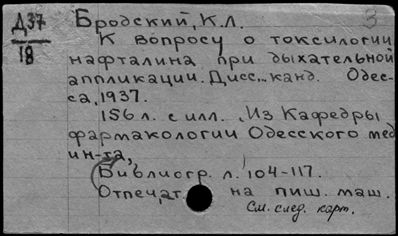 Д37
18
Бродский, К.Л.
3
К вопросу о токсилогии
нафталина при дыхательной
аппликации. Дисс... канд. Одес-
са, 1937.
156 л. с илл. . Из Кафедры
фармакологии Одесского мед
ин-та,
Библиогр. л. 104-117.
Отпечат. на пиш. маш.
См. след. карт.